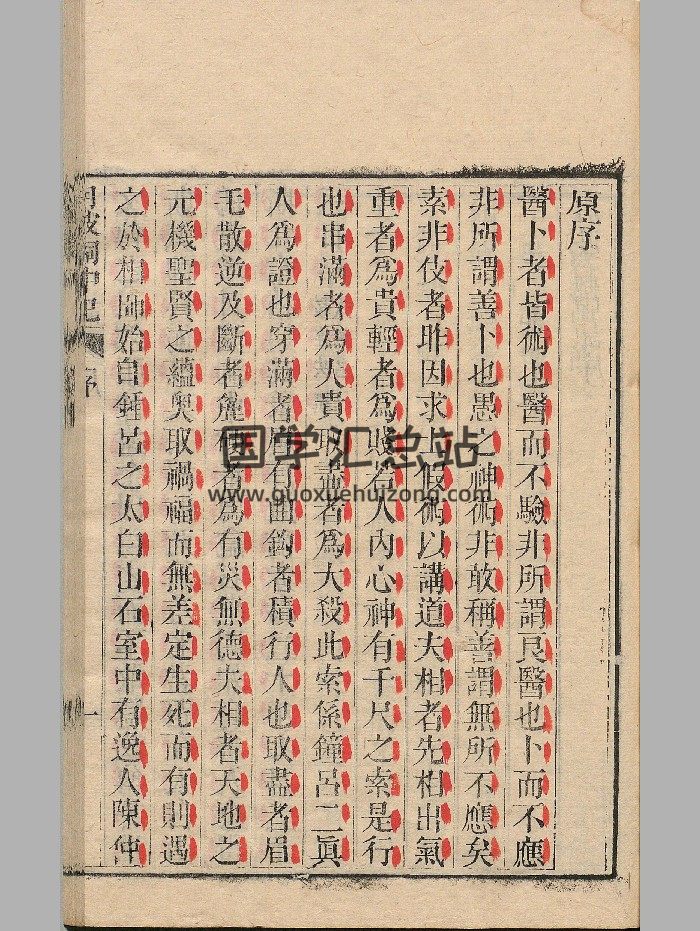 原序
醫卜者皆術也醫而不驗非所謂良醫也卜而不應
非所謂善卜也愚之神術非敢稱善謂無所不應矣
素非伎者昨因求占假術以講道夫相者先相出氣
重者為貴輕者為賤名人內心神有千尺之索是行
也串滿者為人貴取盡者為大殺此索係鐘呂二眞
人為證也穿滿者皆有曲鈎者積行人也取盡者眉
毛散逆及斷者為有災無德夫相者天地之
元機聖賢之蘊奧取禍福而無差定生死而有則遇
之於相師始自鍾呂之太白山石室中有逸人陳仲
月波洞中記 序 一
国学汇总站
www.guoxuehuizong.com